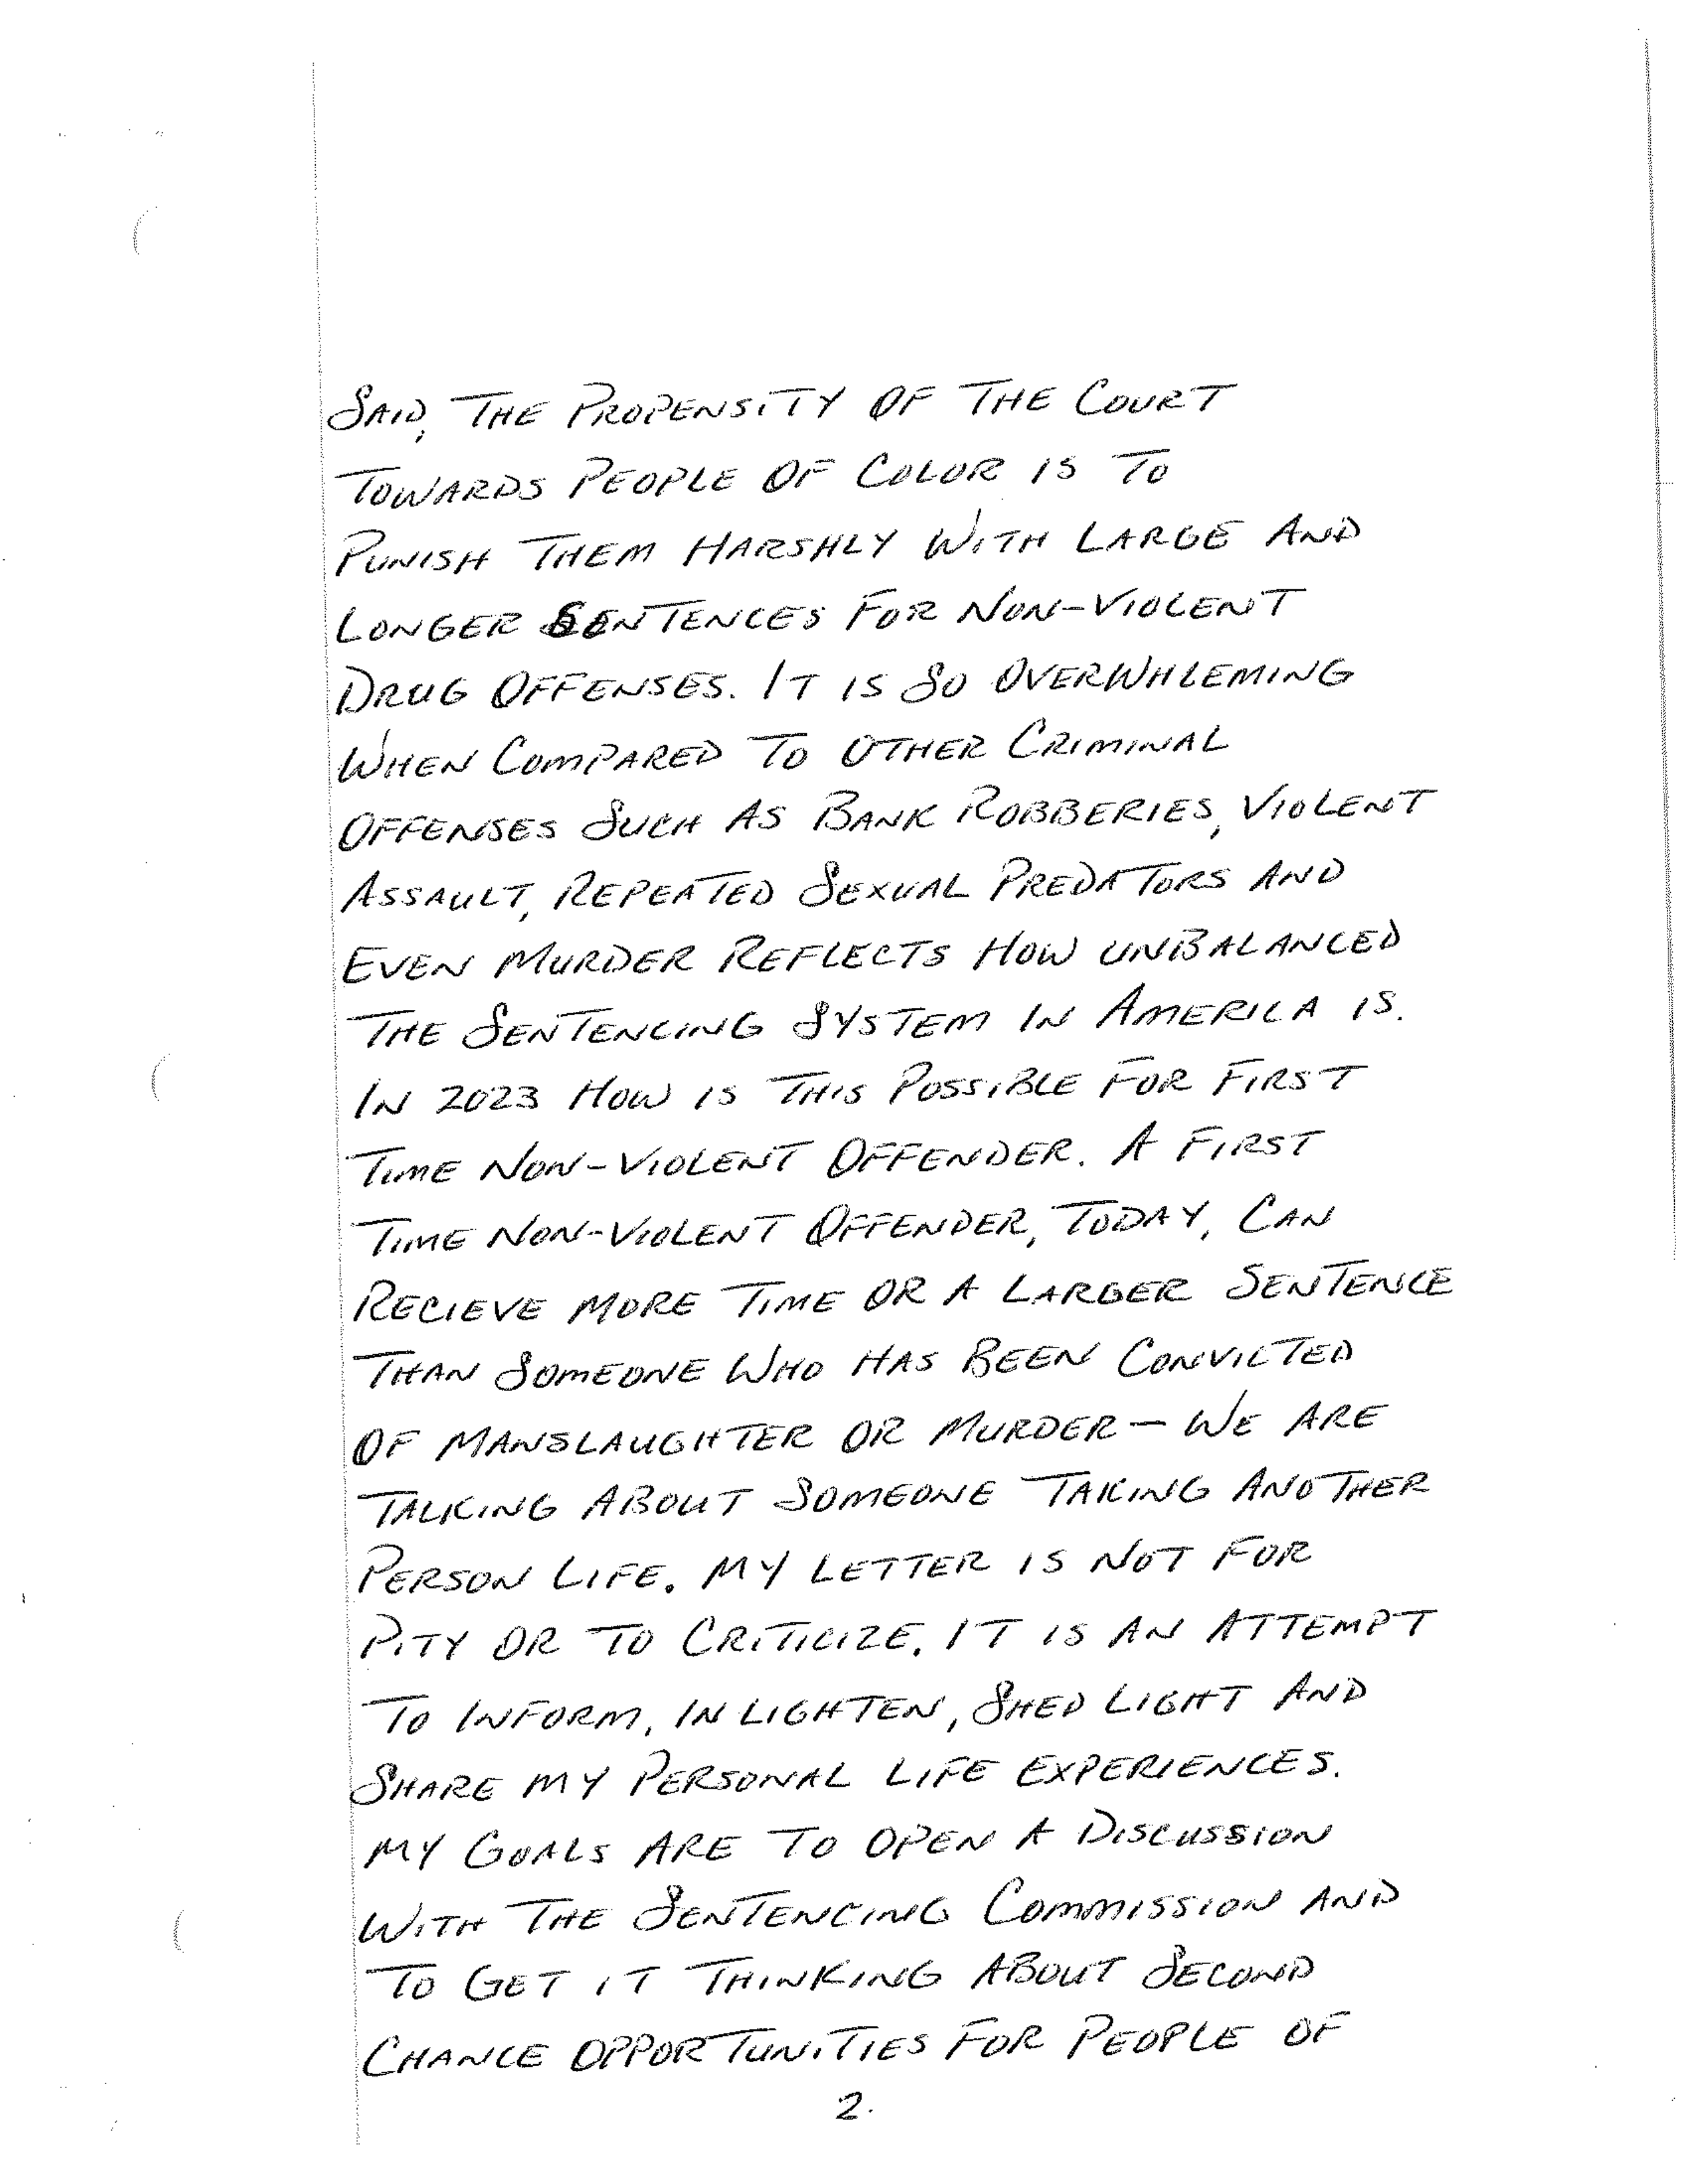 SAID, THE PROPENSITY OF THE COURT
TOWARDS PEOPLE OF COLOR IS TO
PUNISH THEM HARSHLY WITH LARGE AND
LONGER SENTENCES FOR NON-VIOLENT
DRUG OFFENSES. IT IS SO OVERWHLEMING
WHEN COMPARED TO OTHER CRIMINAL
OFFENSES SUCH AS BANK ROBBERIES, VIOLENT
ASSAULT, REPEATED SEXUAL PREDATORS AND
EVEN MURDER REFLECTS HOW UNBALANCED
THE SENTENCING SYSTEM IN AMERICA IS.
IN 2023 HOW IS THIS POSSIBLE FOR FIRST
TIME NON-VIOLENT OFFENDER. A FIRST
TIME NON-VIOLENT OFFENDER, TODAY, CAN
RECIEVE MORE TIME OR A LARGER SENTENCE
THAN SOMEONE WHO HAS BEEN CONVICTED
OF MANSLAUGHTER OR MURDER — WE ARE
TALKING ABOUT SOMEONE TAKING ANOTHER
PERSON LIFE. MY LETTER IS NOT FOR
PITY OR TO CRITICIZE. IT IS AN ATTEMPT
TO INFORM, IN LIGHTEN, SHED LIGHT AND
SHARE MY PERSONAL LIFE EXPERIENCES.
MY GOALS ARE TO OPEN A DISCUSSION
WITH THE SENTENCING COMMISSION AND
TO GET IT THINKING ABOUT SECOND
CHANCE OPPORTUNITIES FOR PEOPLE OF
2.